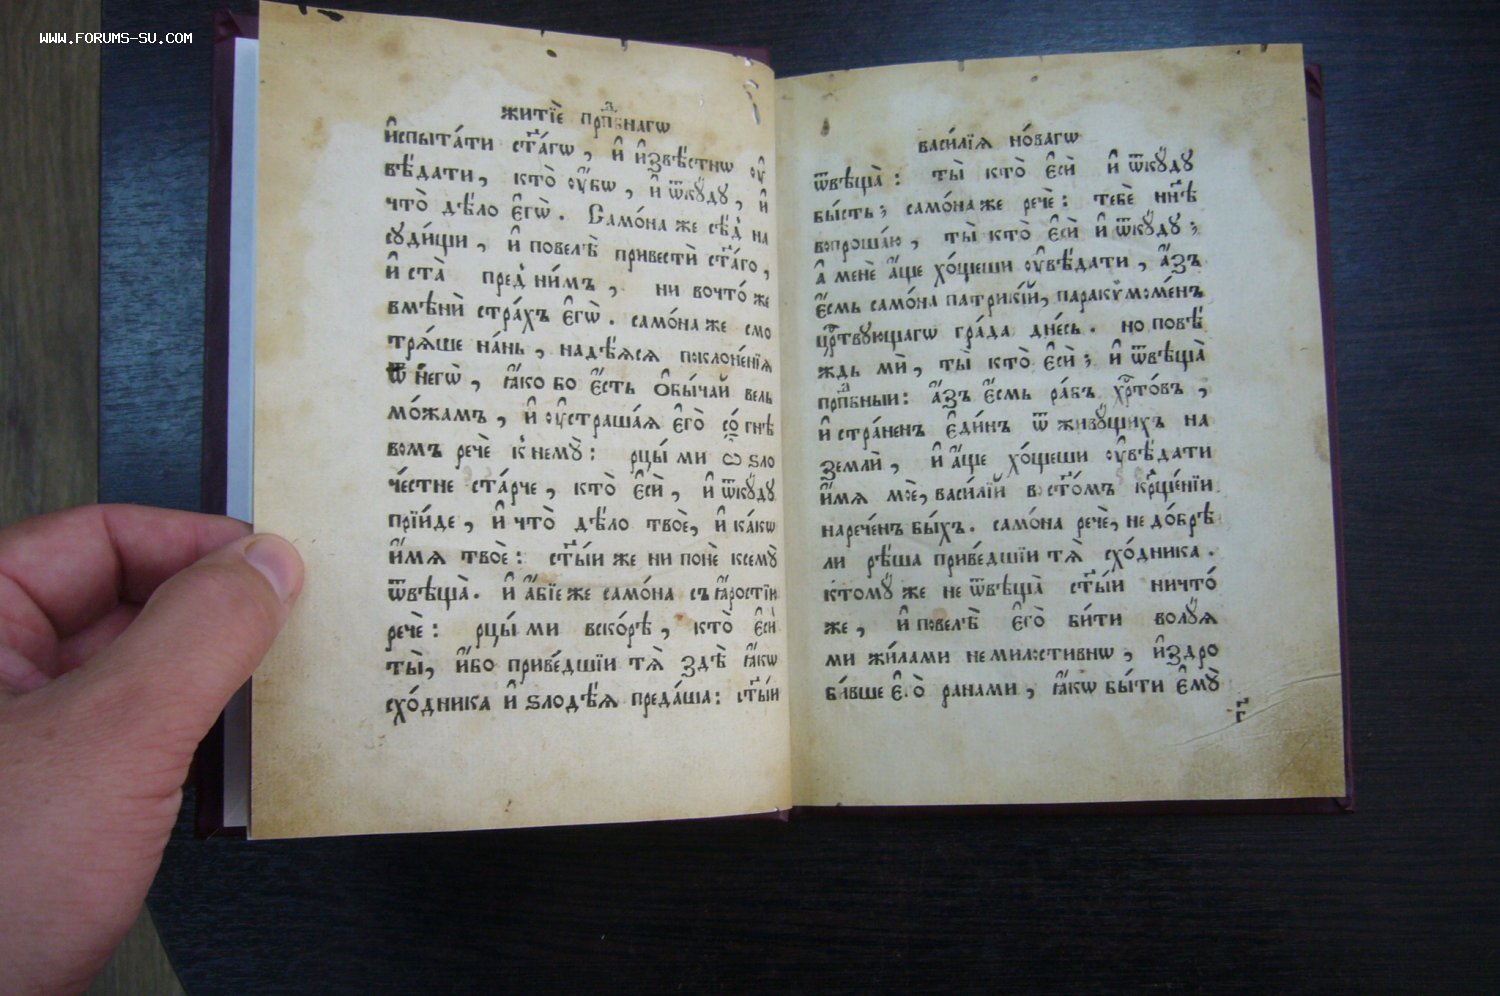 WWW.FORUMS-SU.COM
житїѐ прпⷣбнагѡ
и҆спыта́ти ст҃а́гѡ, и҆ и҆звѣ́стнѡ ᲂу҆
вѣ́дати, кто̀ ᲂу҆́бѡ, и҆ ѿкꙋ́дꙋ, и҆
что̀ дѣ́ло є҆гѡ̀. Само́на же сѣ́д̾ на
сꙋди́щи, и҆ повелѣ̀ привестѝ ст҃а́го,
и҆ ста̀ пред̾ ни́мъ, ни вочто́ же
вмѣнѝ стра́хъ є҆гѡ̀. само́на же смо
трѧ́ше на́нь, надѣ́ѧсѧ поклоне́нїѧ
ѿ негѡ̀, ꙗ҆́ко бо є҆́сть ѻ҆бы́чай вель
мо́жамъ, и҆ ᲂу҆страша́ѧ є҆го̀ со́ гнѣ
вомъ речѐ к̾ немꙋ̀: рцы́ ми ѽ ѕло
че́стне ста́рче, кто̀ є҆сѝ, и҆ ѿкꙋ́дꙋ
прїи́де, и҆ что̀ дѣ́ло твоѐ, и҆ ка́кѡ
и҆́мѧ твоѐ: ст҃ы́и же ни понѐ ксемꙋ̀
ѿвѣща̀. и҆ а҆́бїе же само́на съ ꙗ҆́ростїи
речѐ: рцы́ ми вско́рѣ, кто̀ є҆сѝ
ты̀, и҆́бо приве́дшїи тѧ̀ здѣ̀ ꙗ҆́кѡ
схо́дника и҆ ѕлодѣ́ѧ преда́ша: ст҃ы́и
васи́лїѧ но́вагѡ
ѿвѣща̀: ты̀ кто̀ є҆сѝ и҆ ѿкꙋ́дꙋ
бы́сть; само́на же речѐ: тебѐ нн҃ѣ
вопроша́ю, ты̀ кто̀ є҆сѝ и҆ ѿкꙋ́дꙋ;
а҆ менѐ а҆́ще хо́щеши ᲂу҆вѣ́дати, а҆́зъ
є҆́смь само́на патрикі́й, паракѷмоме́нъ
црⷭ҇твующагѡ гра́да дне́сь. но повѣ́
ждь мѝ, ты̀ кто̀ є҆сѝ; и҆ ѿвѣща̀
прпⷣбныи: а҆́зъ є҆́смь ра́бъ хрⷭ҇то́въ,
и҆ стра́ненъ є҆ди́нъ ѿ живꙋ́щихъ на
землѝ, и҆ а҆́ще хо́щеши ᲂу҆вѣ́дати
и҆́мѧ моѐ, васи́лїй в ст҃о́мъ кр҃ще́нїи
нарече́нъ бы́хъ. само́на речѐ, не до́брѣ
ли рѣ́ша приве́дшїи тѧ̀ схо́дника.
ктомꙋ̀ же не ѿвѣща̀ ст҃ы́и ничто́
же, и҆ повелѣ̀ є҆го̀ би́ти волꙋ́ѧ
ми жи́лами немилостивнѡ, и҆здро
би́вше є҆го̀ ранами, ꙗ҆́кѡ бы́ти є҆мꙋ̀
г҃